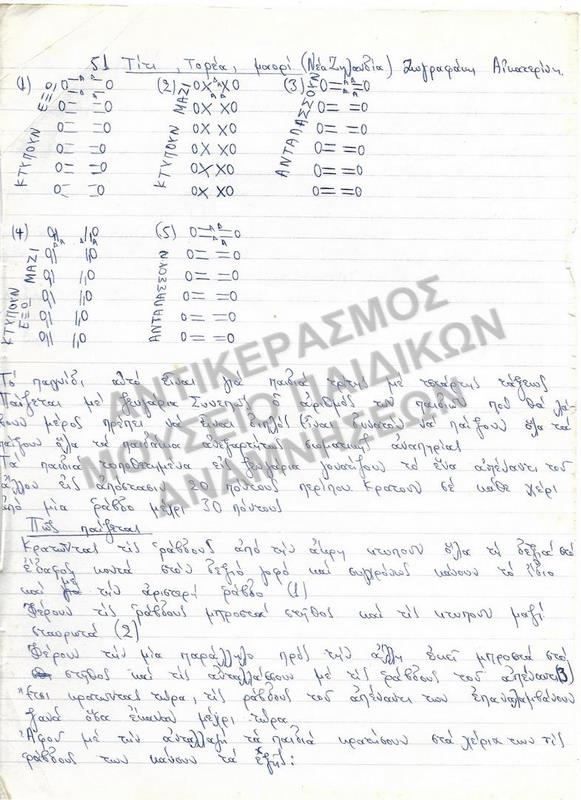 51 Τίτι, Τορέα, μαορί (Νέα Ζηλανδία) Ζωγραφάκη Αικατερίνη.
(1) ΚΤΥΠΟΥΝ ΕΞΩ
(2) ΚΤΥΠΟΥΝ ΜΑΖΙ
(3) ΑΝΤΑΛΑΣΣΟΥΝ
(4) ΚΤΥΠΟΥΝ ΕΞΩ ΜΑΖΙ
(5) ΑΝΤΑΛΑΣΣΟΥΝ
ΑΝΤΙΚΕΡΑΣΜΟΣ
ΜΟΥΣΕΙΟ ΠΑΙΔΙΚΩΝ
ΑΝΑΜΝΗΣΕΩΝ
Τό παιχνίδι αυτό είναι για παιδιά τρίτης με τετάρτης τάξεως
Παίζεται με ζευγάρια Συνεπώς ο αριθμός των παιδιών που θα λά-
βουν μέρος πρέπει να είναι διπλός (Είναι δυνατόν να παίξουν όλα τα
παίξουν όλα τα παιδάκια ανεξαρτήτως σωματικής αναπηρίας
Τα παιδιά τοποθετημένα εις ζευγάρια γονατίζουν το ένα απέναντι του
άλλου εις απόστασιν 20 πόντους περίπου κρατούν σε κάθε χέρι
από μία ράβδο μέχρι 30 πόντους
Πώς παίζεται
Κρατώντας τις ράβδους από την άκρη κτυπούν όλα τη δεξιά στο
έδαφος κοντά στον δεξιό γοφό και συγχρόνως κάνουν το ίδιο
και με την αριστερή ράβδο (1)
Φέρουν τις ράβδους μπροστά στήθος και τις κτυπούν μαζί
σταυρωτά (2)
Φέρουν την μία παράλληλο προς την άλλη εκεί μπροστά στο
στήθος και τις ανταλλάσσουν με τις ράβδους του απέναντι (3)
Έτσι κρατώντας τώρα, τις ράβδους του απέναντι των επαναλαμβάνουν
ξανά όσα έκαναν μέχρι τώρα
Αφού με την ανταλλαγή τα παιδιά κρατήσουν στα χέρια των τις
ράβδους των κάνουν τα εξής: